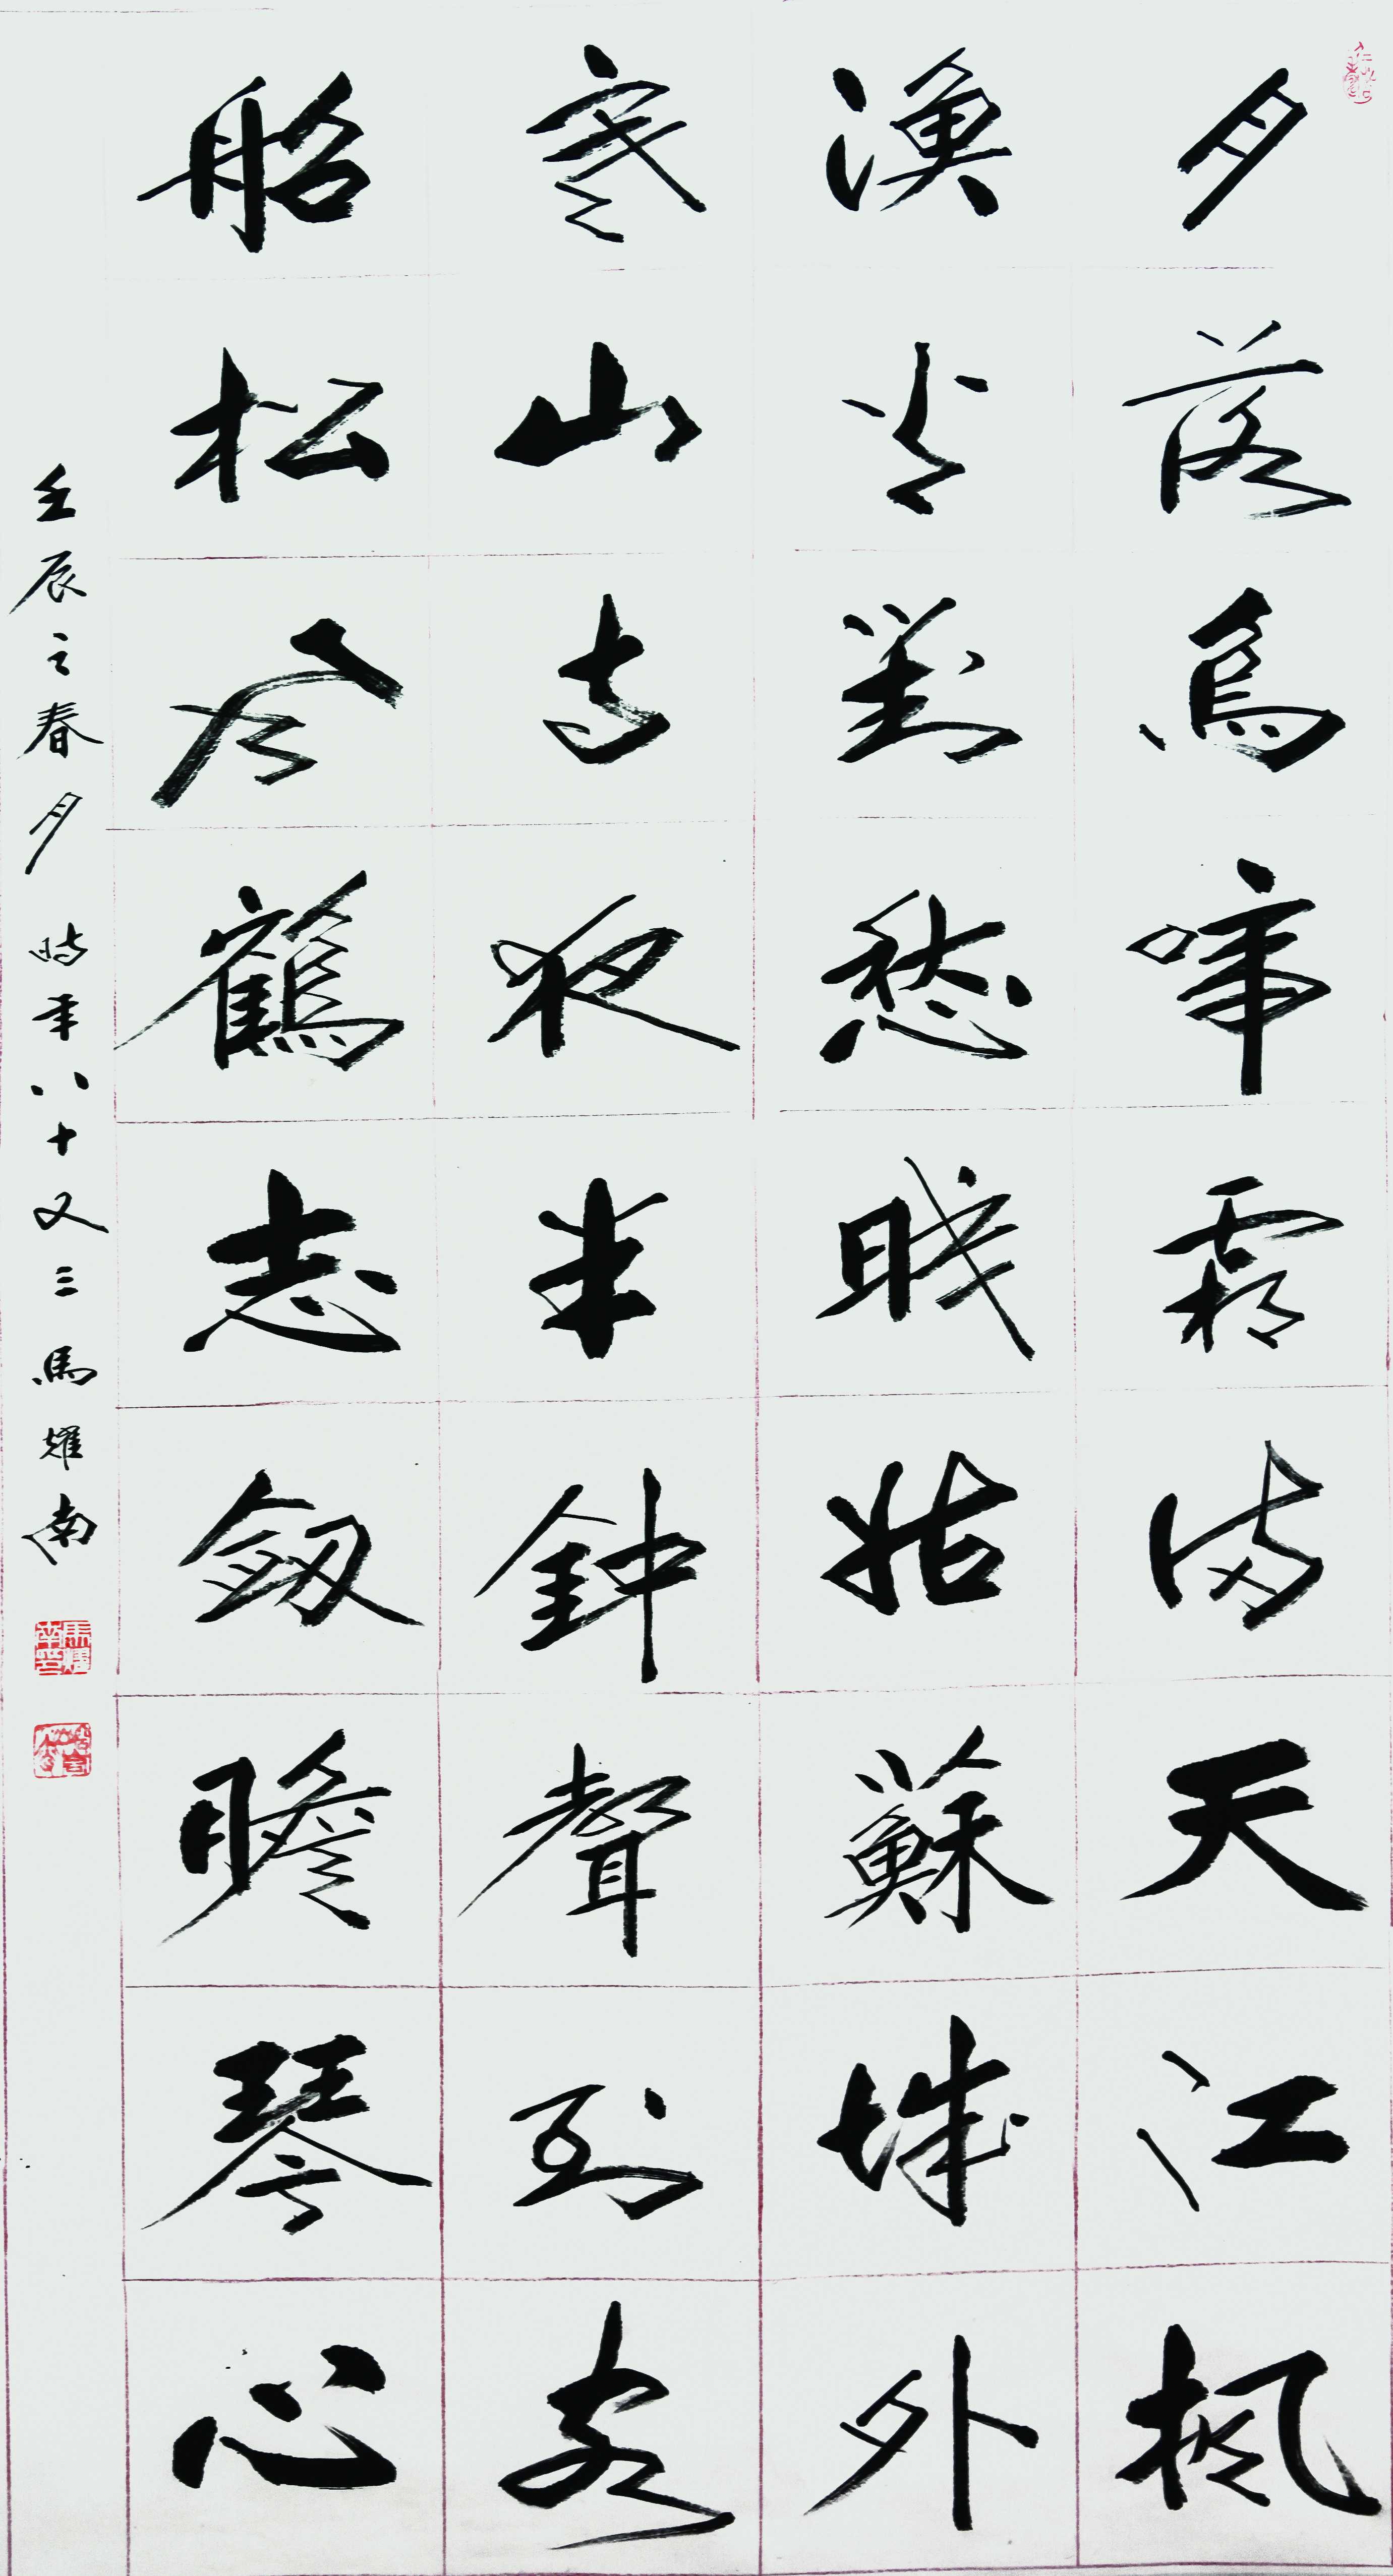 月落烏啼霜滿天江楓
漁火對愁眠姑蘇城外
寒山寺夜半鐘聲到客
船松風鶴志劒膽琴心
壬辰之春月時年八十又三馬耀南